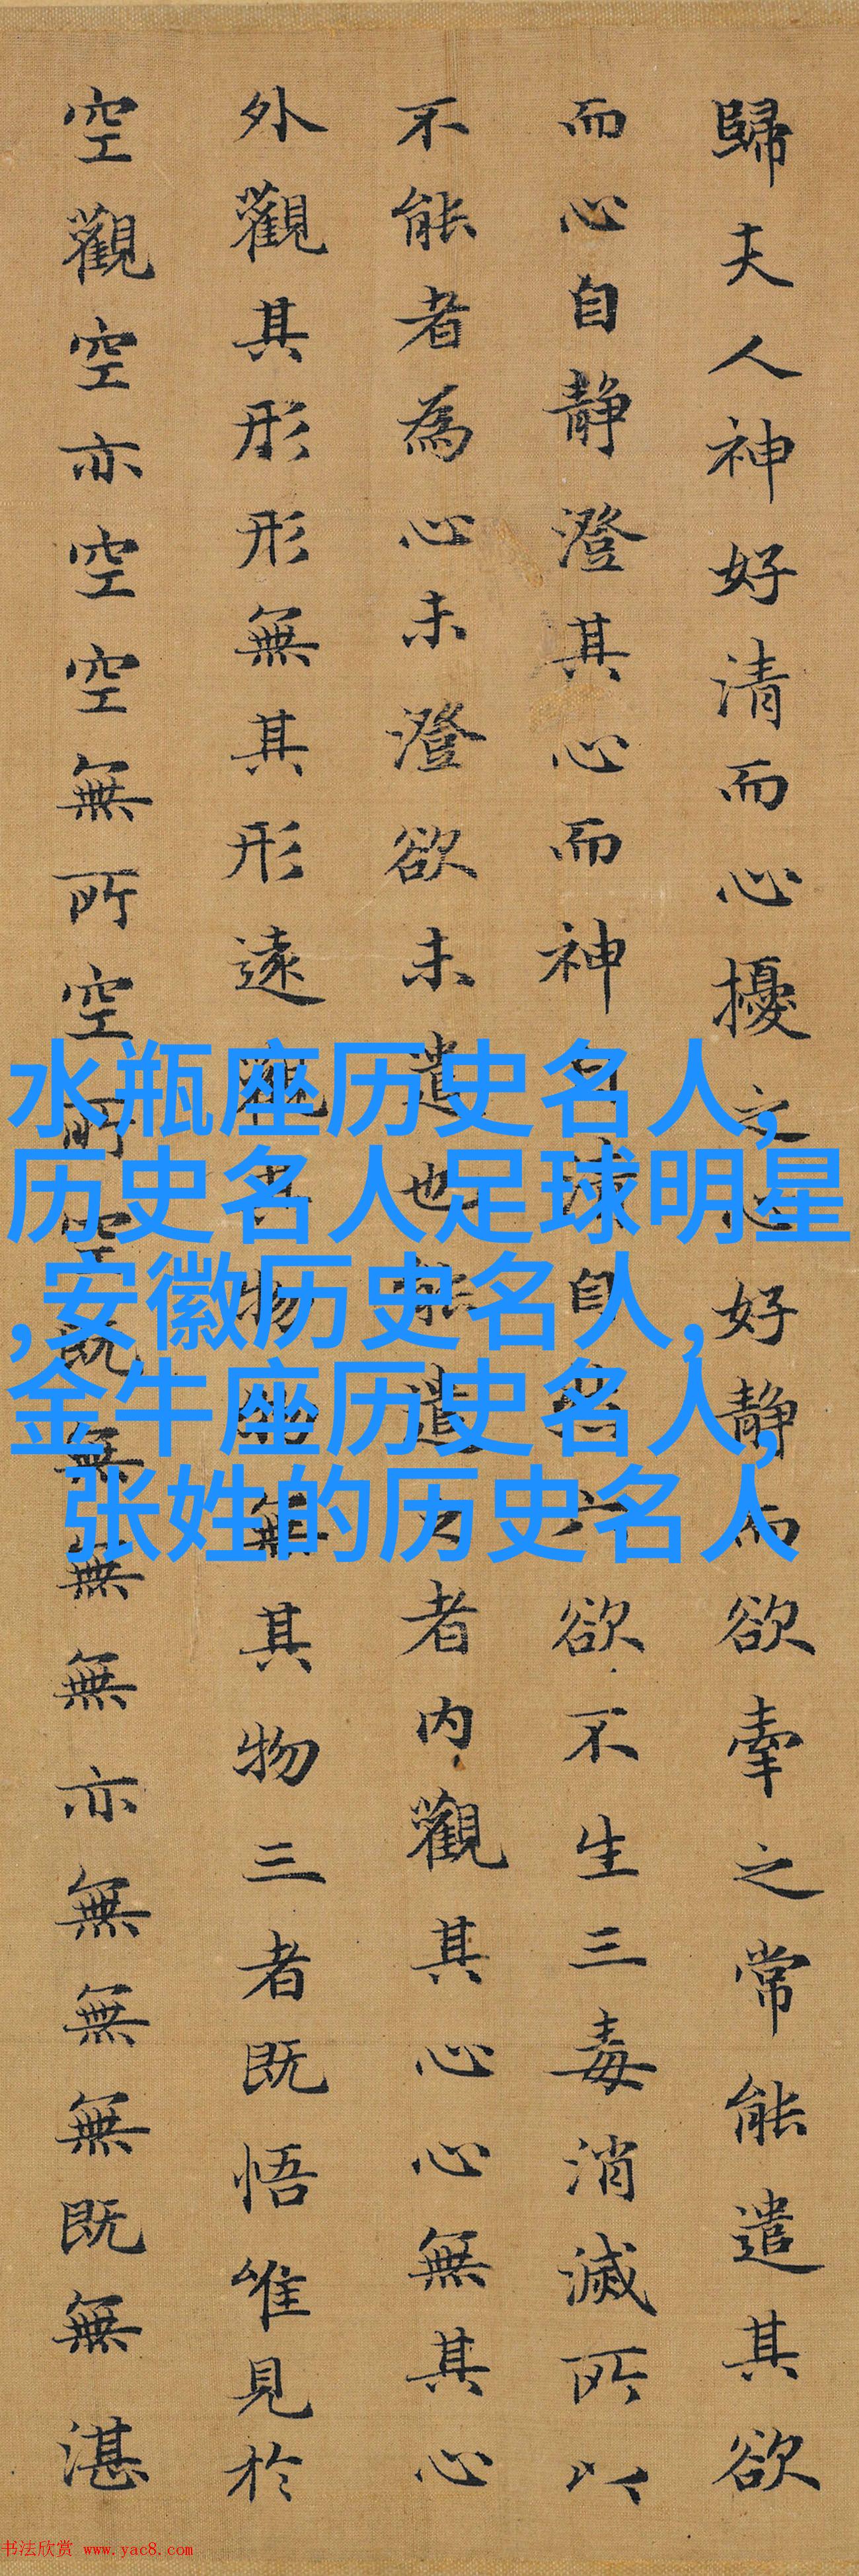 歸夫人神好清而心擾之心好静而欲牽之常能遣其欲
而心自静澄其心而神自清自然六欲不生三毒消滅所以
不能者為心未澄欲未遣也能遣之者内觀其心心無其心
外觀其形形無其形遠觀其物物無其物三者既悟唯見於
空觀空亦空空無所空所空既無無無亦無無無既無湛
水瓶座历史名人,
历史名人足球明星
,安徽历史名人,
金牛座历史名人,
张姓的历史名人
书法欣赏 www.yac8.com